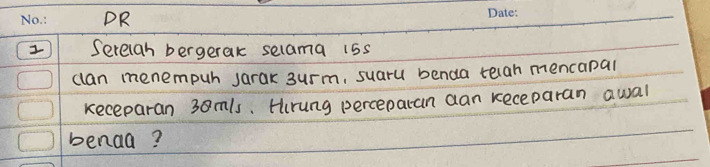 No.: DR Date:
1 Setelah bergerak selama 15s
dan menempuh jarak 345m, suatu benda telah mencapai
kecepatan 30m/s. Hitung percepatan dan kecepatan awal
benda ?